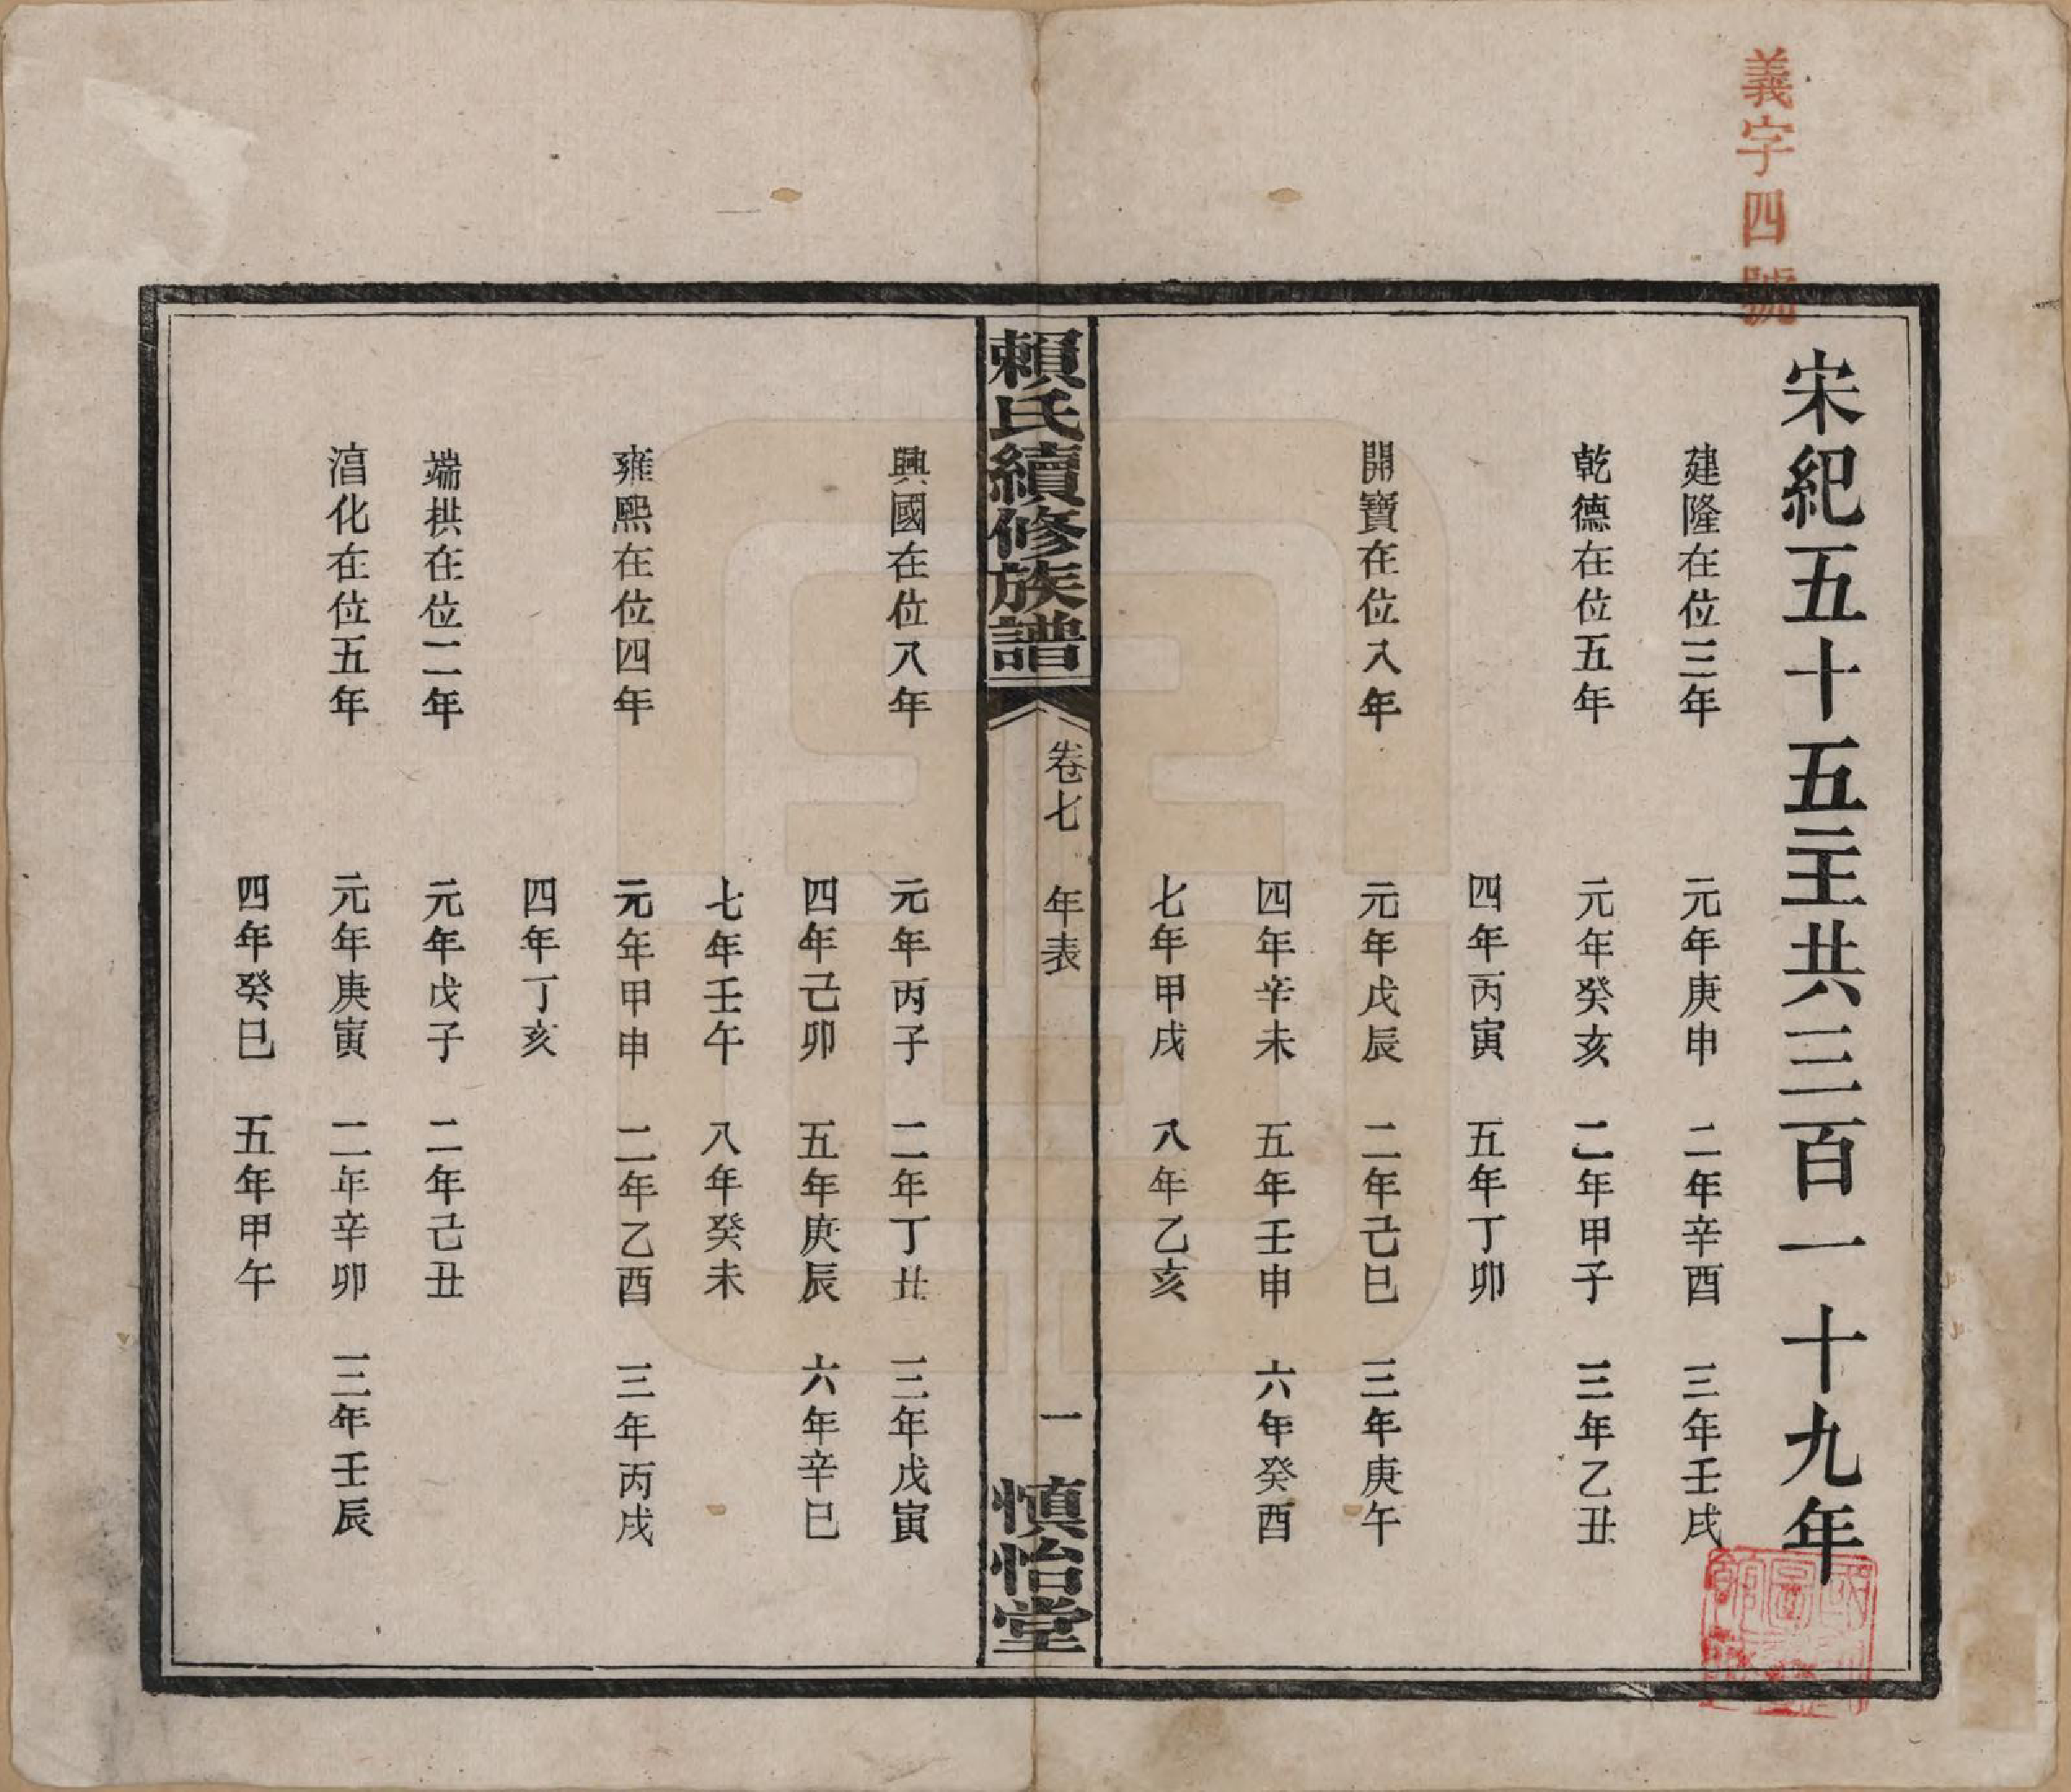 義字四號
宋紀五十五主共三百一十九年
建隆在位三年 元年庚申 二年辛酉 三年壬戌
乾德在位五年 元年癸亥 二年甲子 三年乙丑
四年丙寅 五年丁卯
開寶在位八年 元年戊辰 二年己巳 三年庚午
四年辛未 五年壬申 六年癸酉
七年甲戌 八年乙亥
賴氏續修族譜 卷七 年表 一 慎怡堂
興國在位八年 元年丙子 二年丁丑 三年戊寅
四年己卯 五年庚辰 六年辛巳
七年壬午 八年癸未
雍熙在位四年 元年甲申 二年乙酉 三年丙戌
四年丁亥
端拱在位二年 元年戊子 二年己丑
淯化在位五年 元年庚寅 二年辛卯 三年壬辰
四年癸巳 五年甲午